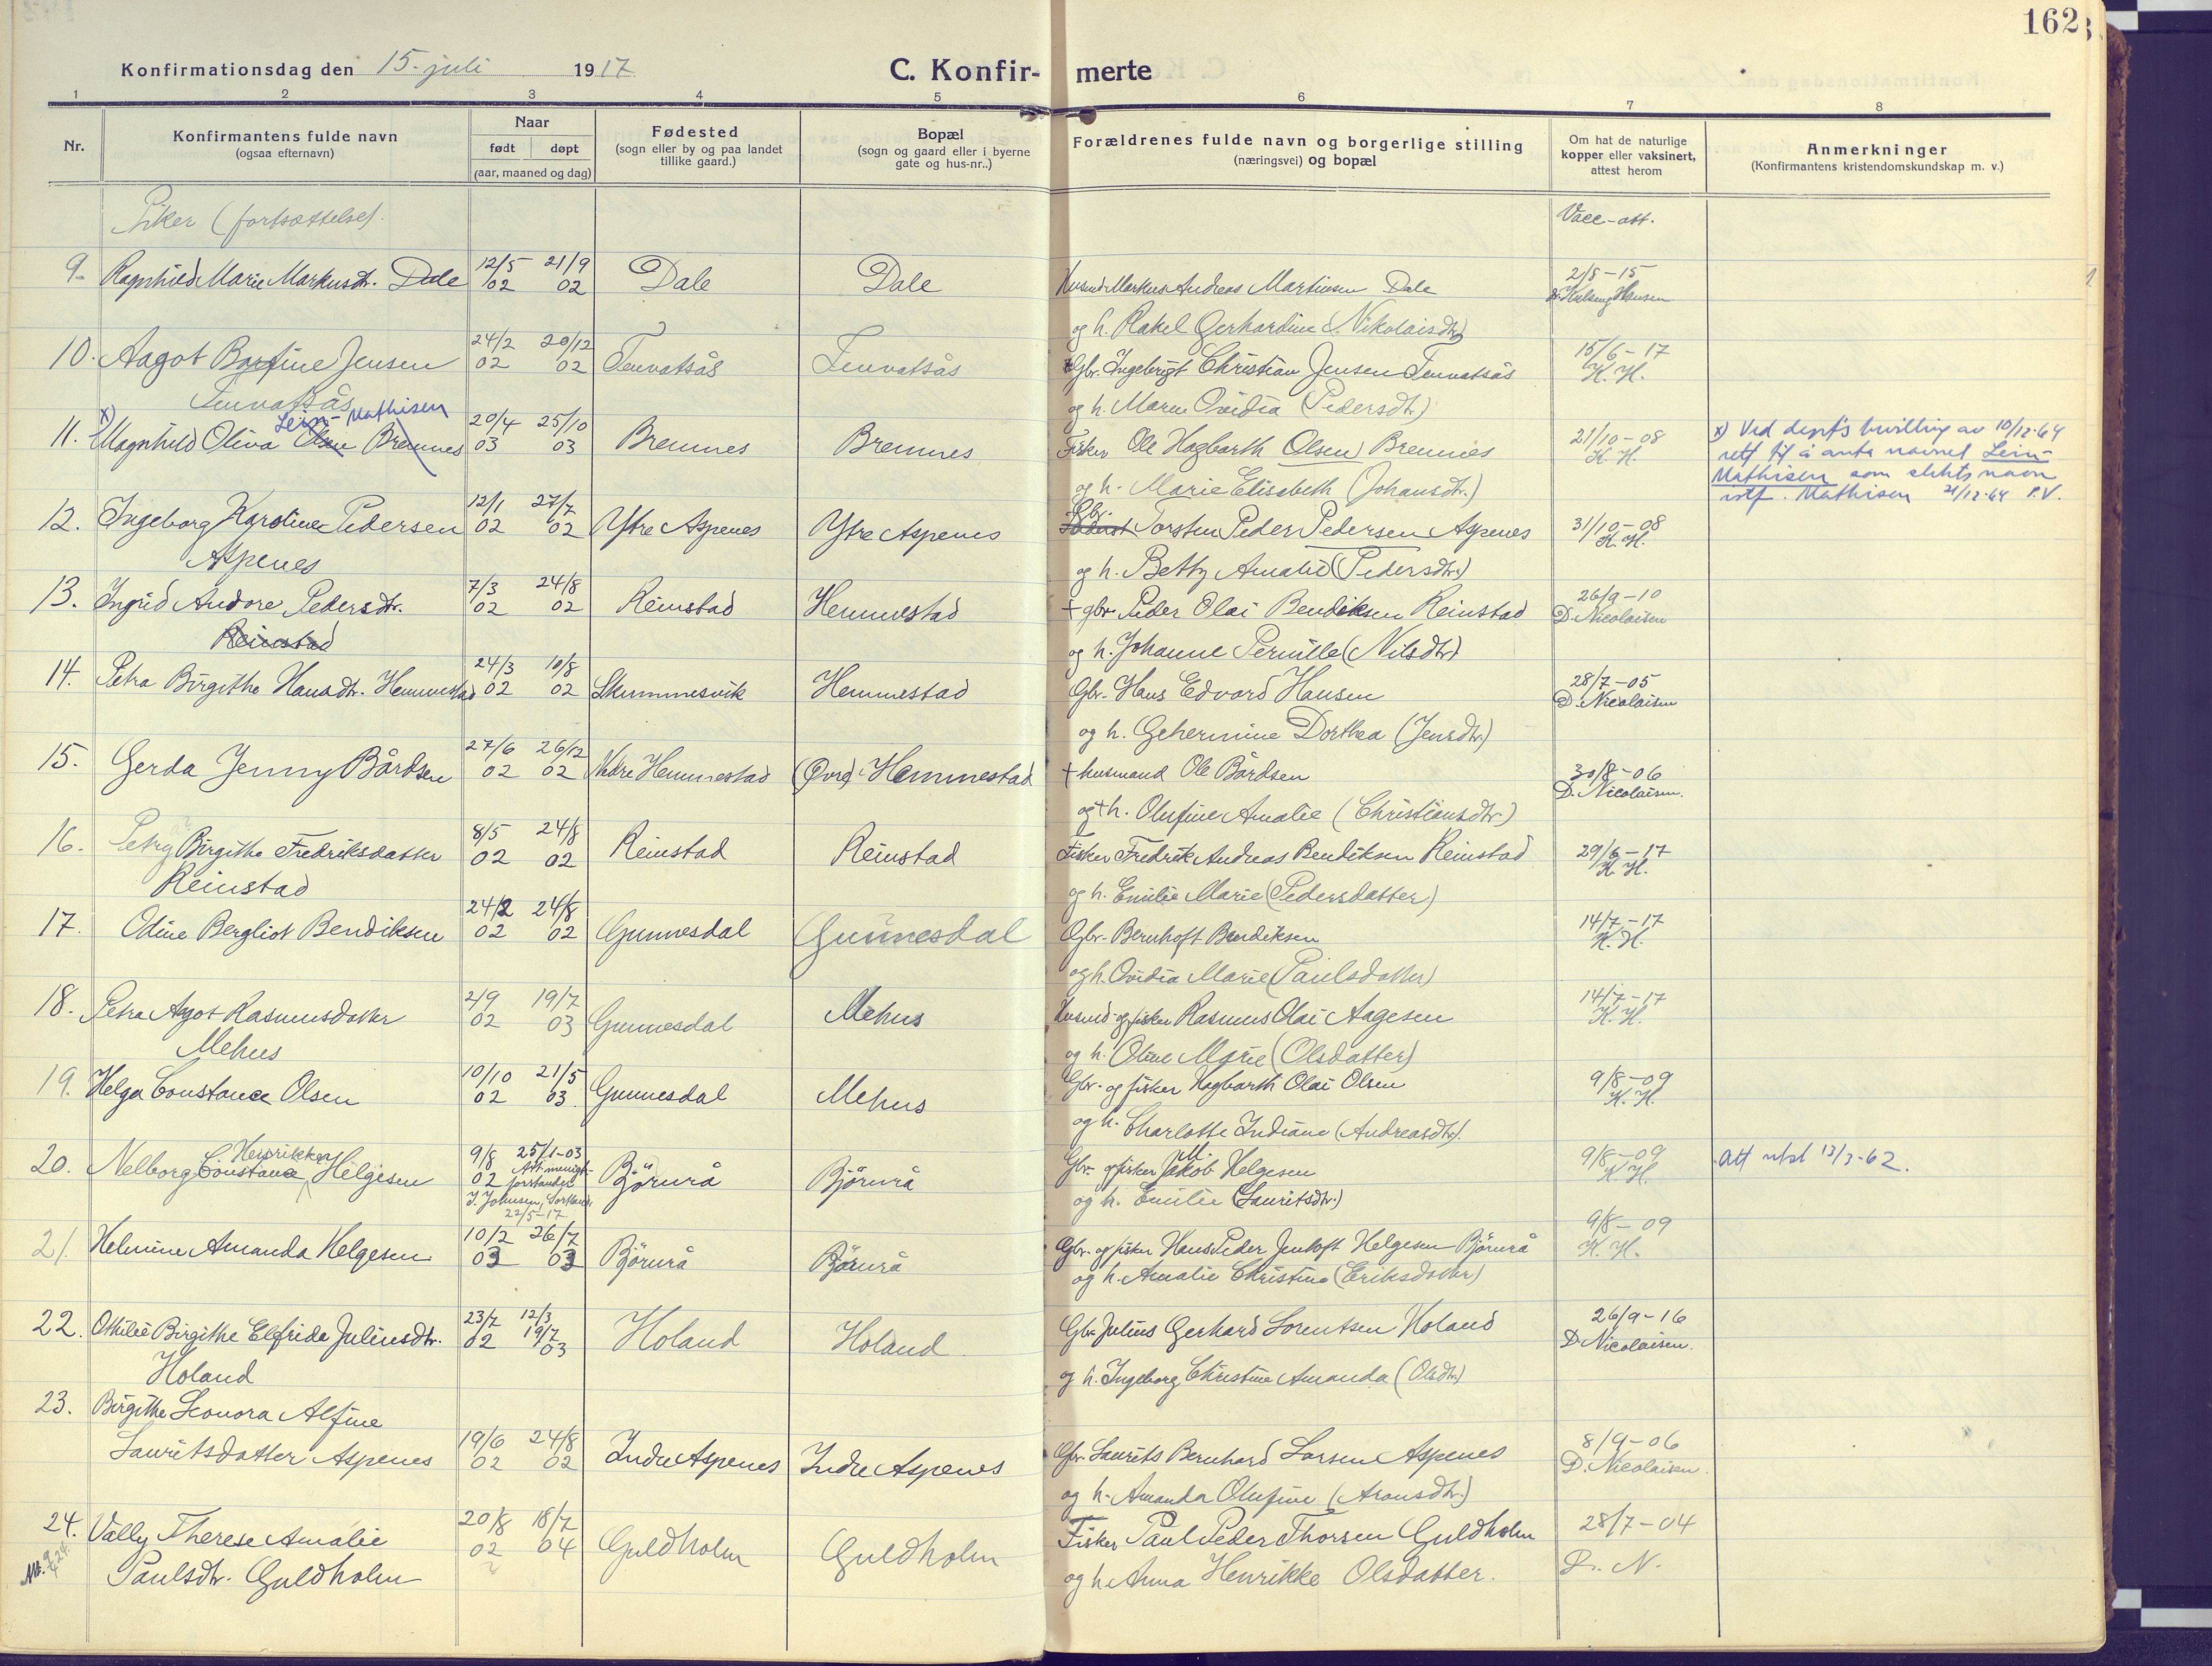 162
Konfirmationsdag den 15. juli 1917
C. Konfir- merte
1 2 3 4 5 6 7 8
Nr.
Konfirmantens fulde navn
(ogsaa efternavn)
Naar
født døpt
(aar, maaned og dag)
Fødested
(sogn eller by og paa landet
tillike gaard.)
Bopæl
(sogn og gaard eller i byerne
gate og hus-nr..)
Forældrenes fulde navn og borgerlige stilling
(næringsvei) og bopæl
Om hat de naturlige
kopper eller vaksinert,
attest herom
Anmerkninger
(Konfirmantens kristendomskundskap m. v.)
Piker (fortsættelse). Vacc-att.
9. Ragnhild Marie Markusdtr. Dale 12/5 02 21/9 02 Dale Dale Husmd. Markus Andreas Martinsen Dale 2/8-15
og h. Rakel Gerhardine (Nikolaisdtr)
10. Aagot Bergine Jensen 24/2 02 20/12 02 Tennatsås Tennatsås Gbr. Ingebrigt Christian Jensen Tennatsås 15/6-17 K. H.
Tennatsås og h. Maren Ovidia (Pedersdtr.)
x) Lein-Mathisen
11. Magnhild Oliva Olsen Bremnes 20/4 03 25/10 03 Bremnes Bremnes Fisker Ole Hagbarth Olsen Bremnes 21/10-08 K. H.
og h. Marie Elisabeth (Johansdtr.)
x) Ved depts bevilling av 10/12-64
rett til å anta navnet Lein-
Mathisen som slektsnavn
istf. Mathisen 21/12-64 P.V.
12. Ingeborg Karoline Pedersen 12/1 02 27/7 02 Ytre Aspenes Ytre Aspenes Gbr. Torsten Peder Pedersen Aspenes 31/10-08 K. H.
Aspenes og h. Betty Amalie (Pedersdtr.)
13. Ingrid Andore Pedersdtr. 7/3 02 24/8 02 Reinstad Hemmestad + gbr. Peder Olai Bendiksen Reinstad 26/9-10 D. Nicolaisen
Reinstad og h. Johanne Pernille (Nilsdtr)
14. Petra Birgithe Hansdtr. Hemmestad 24/3 02 10/8 02 Skummesvik Hemmestad Gbr. Hans Edvard Hansen 28/7-05 D. Nicolaisen
og h. Gehermine Dorthea (Jensdtr.)
15. Gerda Jenny Bårdsen 27/6 02 26/12 02 Nedre Hemmestad (Øvre) Hemmestad + husmand Ole Bårdsen 30/8-06 D. Nicolaisen.
og + h. Olufine Amalie (Christiansdtr.)
16. Petry Birgithe Fredriksdatter 8/5 02 24/8 02 Reinstad Reinstad Fisker Fredrik Andreas Bendiksen Reinstad 29/6-17 K. H.
Reinstad og h. Emilie Marie (Pedersdatter)
17. Odine Bergliot Bendiksen 24/2 02 24/8 02 Gunnesdal Gunnesdal Gbr. Bernhoft Bendiksen 14/7-17 K. H.
og h. Ovidia Marie (Paulsdatter)
18. Petra Agot Rasmusdatter 2/9 02 19/7 03 Gunnesdal Mehus Husmd. og fisker Rasmus Olai Aagesen 14/7-17 K. H.
Mehus og h. Oline Marie (Olsdatter)
19. Helga Constance Olsen 10/10 02 21/5 03 Gunnesdal Mehus Gbr. og fisker Hagbarth Olai Olsen 9/8-09 K. H.
og h. Charlotte Indiane (Andreasdtr).
20. Nelborg Constance Henrikken Helgesen 9/8 02 25/1-03 Att. menigh. forstander J. Johnsen, Sortland, 22/5-17 Björnrå Björnrå Gbr. og fisker Jakob M. Helgesen 9/8-09 K. H. Att utst 13/3-62.
og h. Emilie (Lauritsdtr.)
21. Helmine Amanda Helgesen 10/2 03 26/7 03 Björnrå Björnrå Gbr. og fisker Hans Peder Jentoft Helgesen Björnrå 9/8-09 K. H.
og h. Amalie Christine (Eriksdatter)
22. Othilie Birgithe Elfrida Juliusdtr. 23/7 02 12/3 19/7 03 Holand Holand Gbr. Julius Gerhard Lorentsen Holand 26/9-16 D. Nicolaisen.
Holand og h. Ingeborg Christine Amanda (Olsdtr)
23. Birgithe Leonora Alfine
Lauritsdatter Aspenes 19/6 02 24/8 02 Indre Aspenes Indre Aspenes Gbr. Laurits Bernhard Larsen Aspenes 8/9-06 D. Nicolaisen.
og h. Amanda Olufine (Aronsdtr.)
24. Vally Therese Amalie 20/8 02 18/7 04 Guldholm Guldholm Fisker Paul Peder Thorsen Guldholm 28/7-04
Paulsdtr. Guldholm og h. Anna Henrikke Olsdatter. D. N.